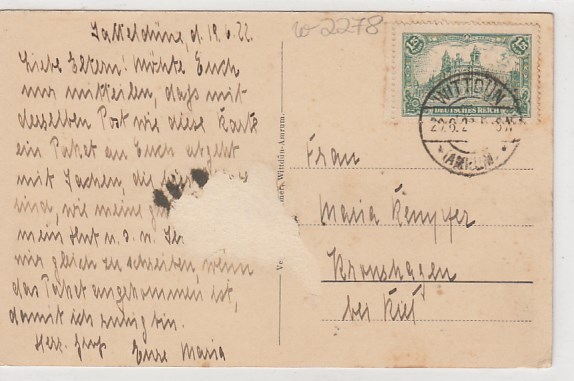 w-2278
Satteldüne, d. 19.6.22.
Liebe Eltern! Möchte Euch
nur mitteilen, dass mit
derselben Post wie diese Karte
ein Paket an Euch abgeht
mit Sachen, die
sind, wie meine
mein Hut u.s.w.
mir gleich zu schreiben, wenn
das Paket angekommen ist,
damit ich ruhig bin.
Herz. Gruß
Eure Maria
Wittdün-Amrum.
1¼ 1¼
DEUTSCHES REICH
WITTDÜN
(AMRUM)
Frau
Maria Kempfer
Kronshagen
bei Kiel